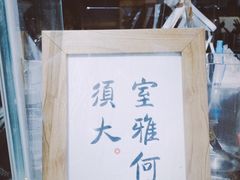 室雅何
須大